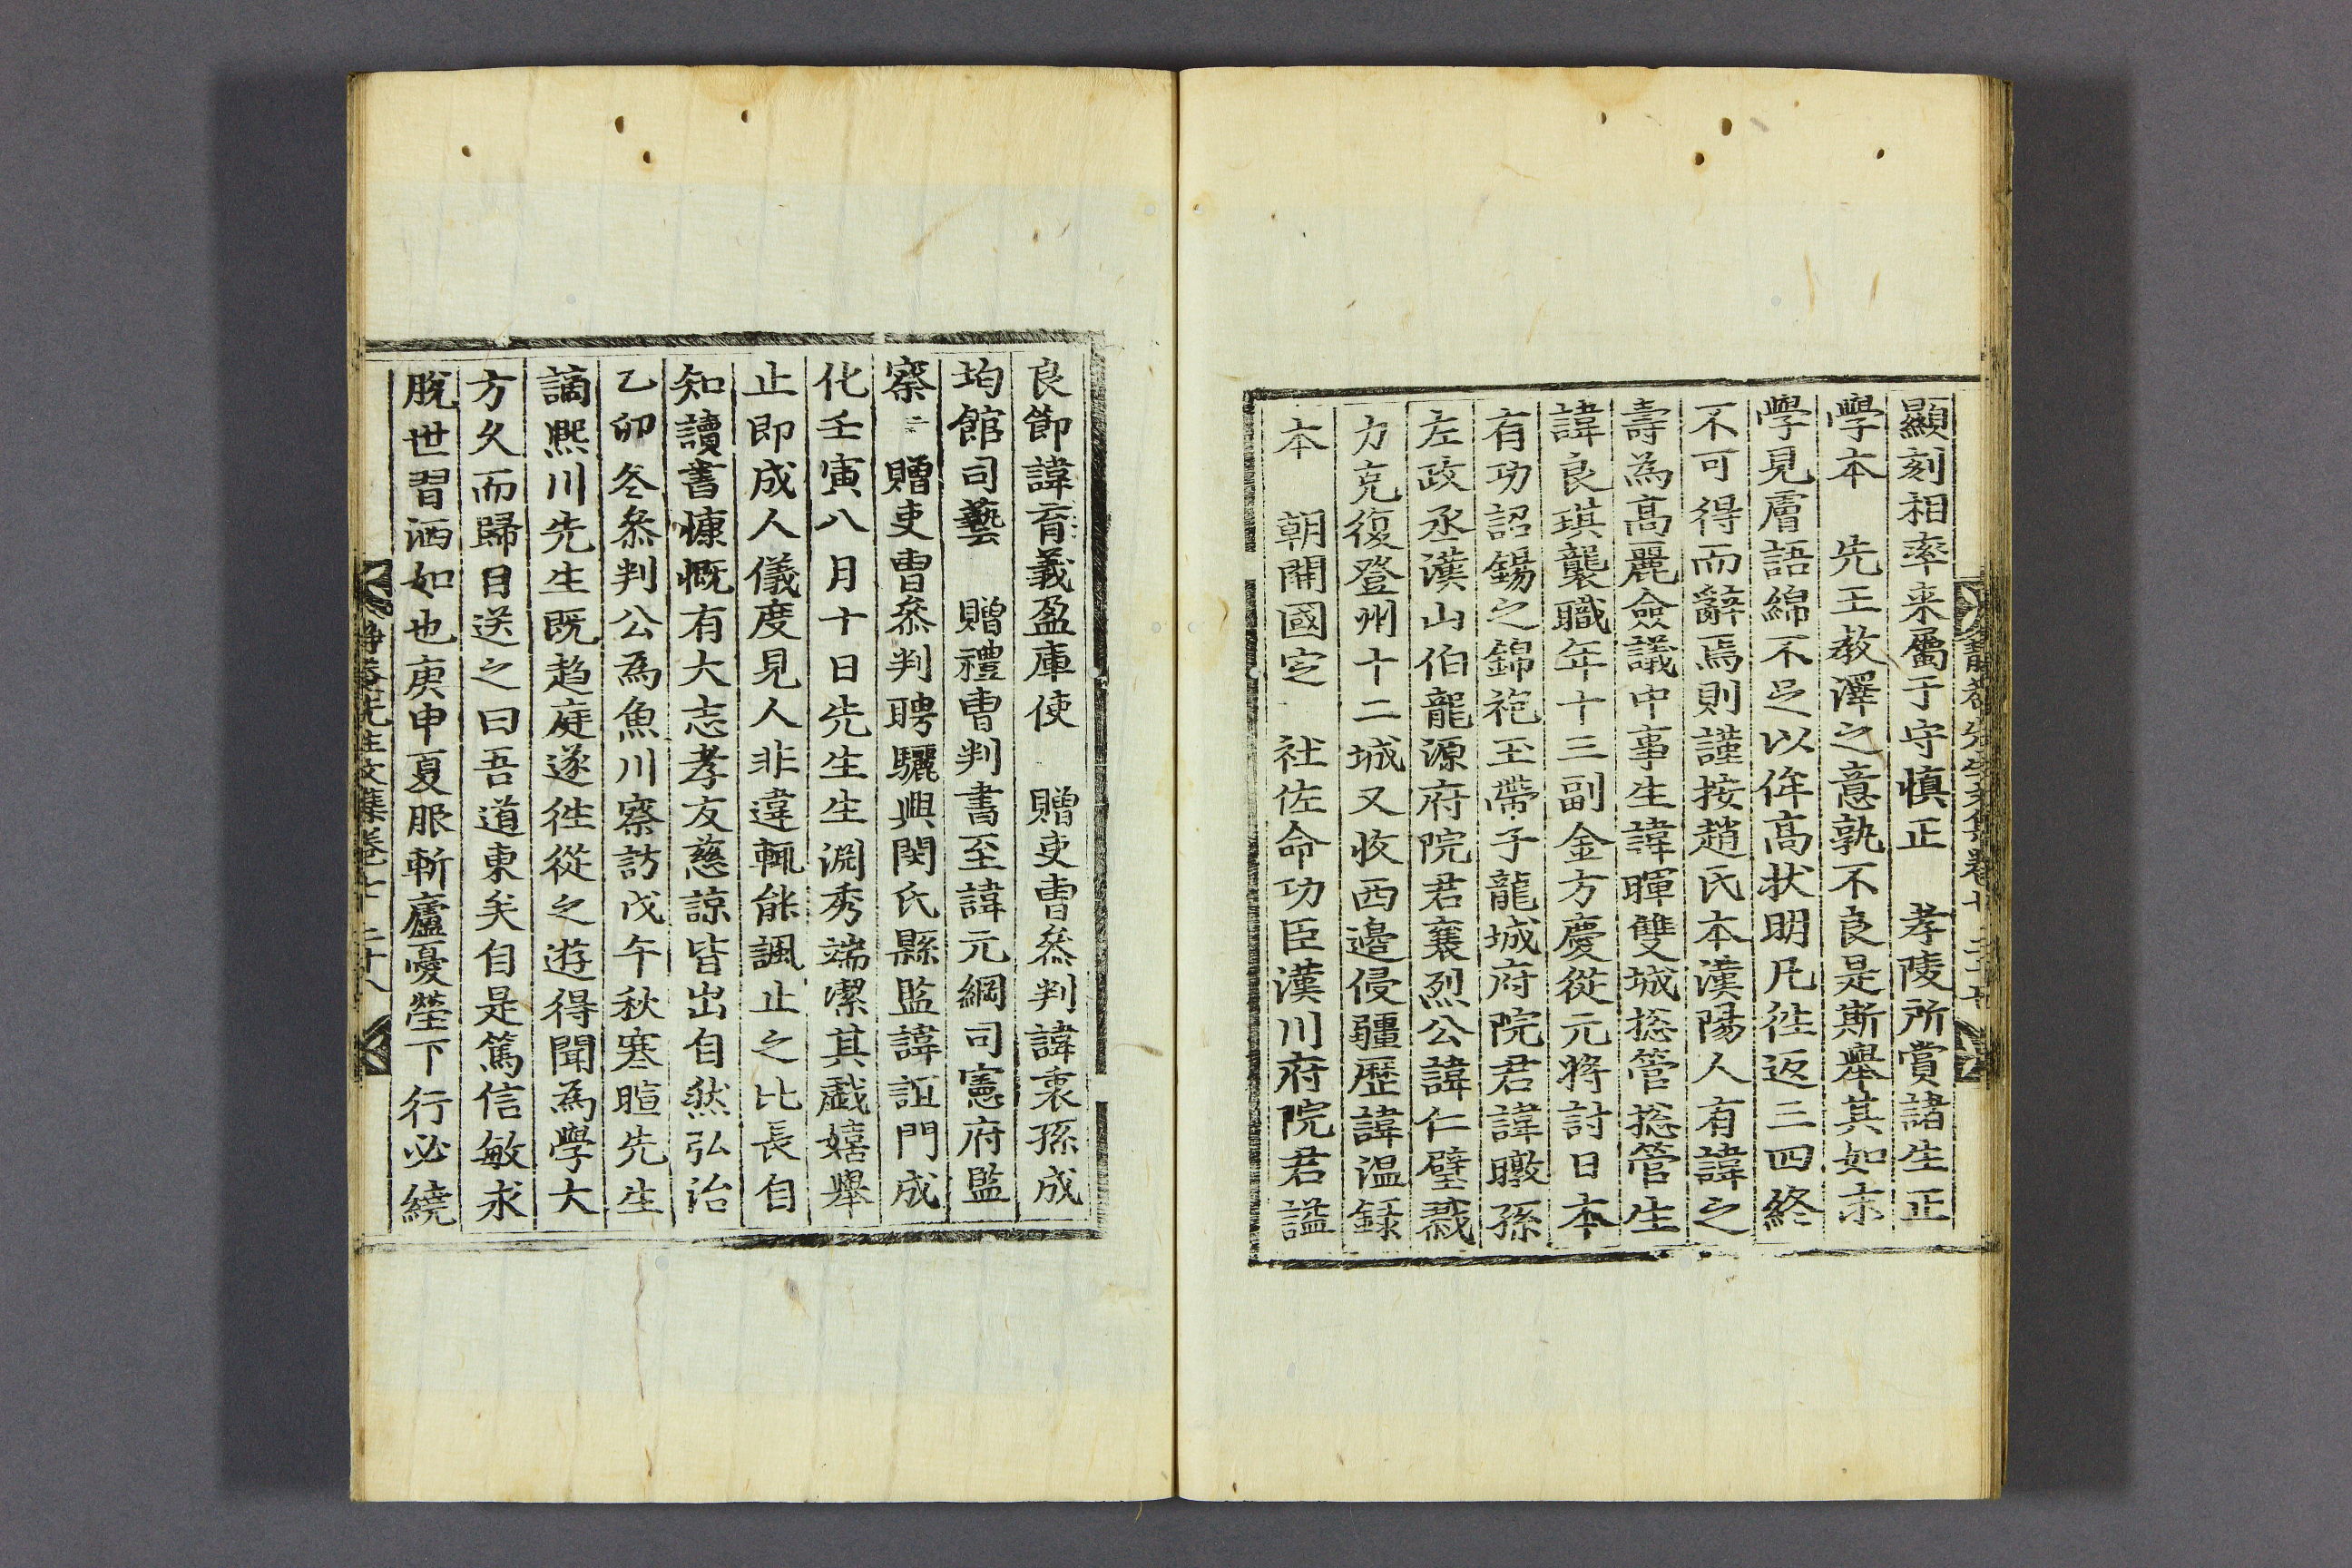 顯刻相率来屬于守愼正　孝陵所賞諸生正
學本　先王敎澤之意孰不良是斯擧其如末
學見膚語綿不足以侔高状明凡徃返三四終
不可得而辭焉則謹按趙氏本漢陽人有諱之
壽為高麗僉議中事生諱暉雙城捴管捴管生
諱良琪襲職年十三副金方慶從元將討日本
有功詔錫之錦袍玉帶子龍城府院君諱暾孫
左政丞漢山伯龍源府院君襄烈公諱仁璧戮
力克復登州十二城又收西邉侵疆歷諱温録
本　朝開國定　社佐命功臣漢川府院君謚
良節諱育義盈庫使　贈吏曹叅判諱衷孫成
均館司藝　贈禮曹判書至諱元綱司憲府監
察　贈吏曹叅判聘驪興閔氏縣監諱誼門成
化壬寅八月十日先生生淵秀端潔其戯嬉擧
止即成人儀度見人非違輒能諷止之比長自
知讀書慷慨有大志孝友慈諒皆出自然弘治
乙卯冬叅判公為魚川察訪戊午秋寒暄先生
謫熙川先生旣趍庭遂徃從之遊得聞為學大
方久而歸目送之曰吾道東矣自是篤信敏求
脫世習洒如也庚申夏服斬廬憂塋下行必繞
静菴先生文集卷七　二十八